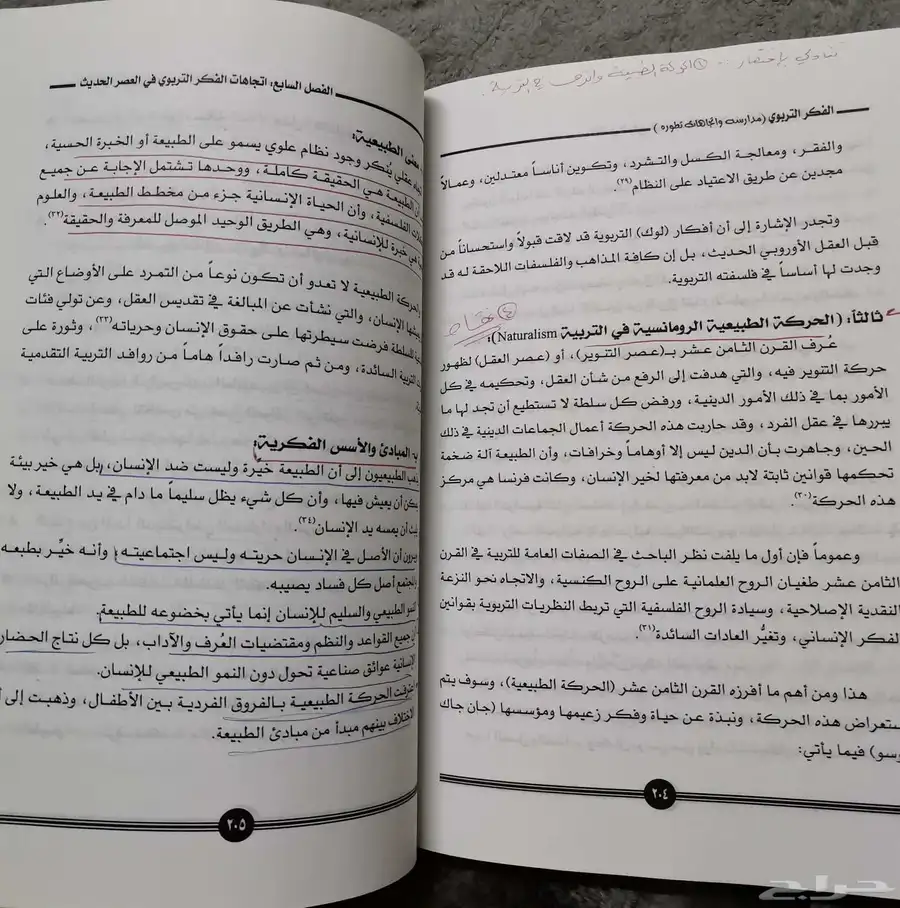 الفكر التربوي (مدارسه واتجاهات تطوره)
والفقر، ومعالجة الكسل والتشرد، وتكوين أناساً معتدلين، وعمالاً
مجدين عن طريق الاعتياد على النظام(٢٩).
وتجدر الإشارة إلى أن أفكار (لوك) التربوية قد لاقت قبولاً واستحساناً من
قبل العقل الأوروبي الحديث، بل إن كافة المذاهب والفلسفات اللاحقة له قد
وجدت لها أساساً في فلسفته التربوية.
٤ نقاط
ثالثاً: (الحركة الطبيعية الرومانسية في التربية Naturalism):
عُرف القرن الثامن عشر بـ(عصر التنوير)، أو (عصر العقل) لظهور
حركة التنوير فيه، والتي هدفت إلى الرفع من شأن العقل، وتحكيمه في كل
الأمور بما في ذلك الأمور الدينية، ورفض كل سلطة لا تستطيع أن تجد لها ما
يبررها في عقل الفرد، وقد حاربت هذه الحركة أعمال الجماعات الدينية في ذلك
الحين، وجاهرت بأن الدين ليس إلا أوهاماً وخرافات، وأن الطبيعة آلة ضخمة
تحكمها قوانين ثابتة لابد من معرفتها لخير الإنسان، وكانت فرنسا هي مركز
هذه الحركة(٣٠).
وعموماً فإن أول ما يلفت نظر الباحث في الصفات العامة للتربية في القرن
الثامن عشر طغيان الروح العلمانية على الروح الكنسية، والاتجاه نحو النزعة
النقدية الإصلاحية، وسيادة الروح الفلسفية التي تربط النظريات التربوية بقوانين
الفكر الإنساني، وتغيُّر العادات السائدة(٣١).
هذا ومن أهم ما أفرزه القرن الثامن عشر (الحركة الطبيعية)، وسوف يتم
ستعراض هذه الحركة، ونبذة عن حياة وفكر زعيمها ومؤسسها (جان جاك
وسو) فيما يأتي:
٢٠٤
الفصل السابع: اتجاهات الفكر التربوي في العصر الحديث
معنى الطبيعية:
عقلي يُنكر وجود نظام علوي يسمو على الطبيعة أو الخبرة الحسية،
أن الطبيعة هي الحقيقة كاملة، ووحدها تشتمل الإجابة عن جميع
الفلسفية، وأن الحياة الإنسانية جزء من مخطط الطبيعة، والعلوم
هي خبرة للإنسانية، وهي الطريق الوحيد الموصل للمعرفة والحقيقة(٣٢).
والحركة الطبيعية لا تعدو أن تكون نوعاً من التمرد على الأوضاع التي
الإنسان، والتي نشأت عن المبالغة في تقديس العقل، وعن تولي فئات
للسلطة فرضت سيطرتها على حقوق الإنسان وحرياته(٣٣)، وثورة على
التربية السائدة، ومن ثم صارت رافداً هاماً من روافد التربية التقدمية
ب- المبادئ والأسس الفكرية:
الطبيعيون إلى أن الطبيعة خيِّرة وليست ضد الإنسان، بل هي خير بيئة
يمكن أن يعيش فيها، وأن كل شيء يظل سليماً ما دام في يد الطبيعة، ولا
يلبث أن يمسه يد الإنسان(٣٤).
ويرون أن الأصل في الإنسان حريته وليس اجتماعيته، وأنه خيِّر بطبعه
والمجتمع أصل كل فساد يصيبه.
النمو الطبيعي والسليم للإنسان إنما يأتي بخضوعه للطبيعة.
أن جميع القواعد والنظم ومقتضيات العُرف والآداب، بل كل نتاج الحضار
الإنسانية عوائق صناعية تحول دون النمو الطبيعي للإنسان.
اعترفت الحركة الطبيعية بالفروق الفردية بين الأطفال، وذهبت إلى أ
الاختلاف بينهم مبدأ من مبادئ الطبيعة.
٢٠٥
حراج